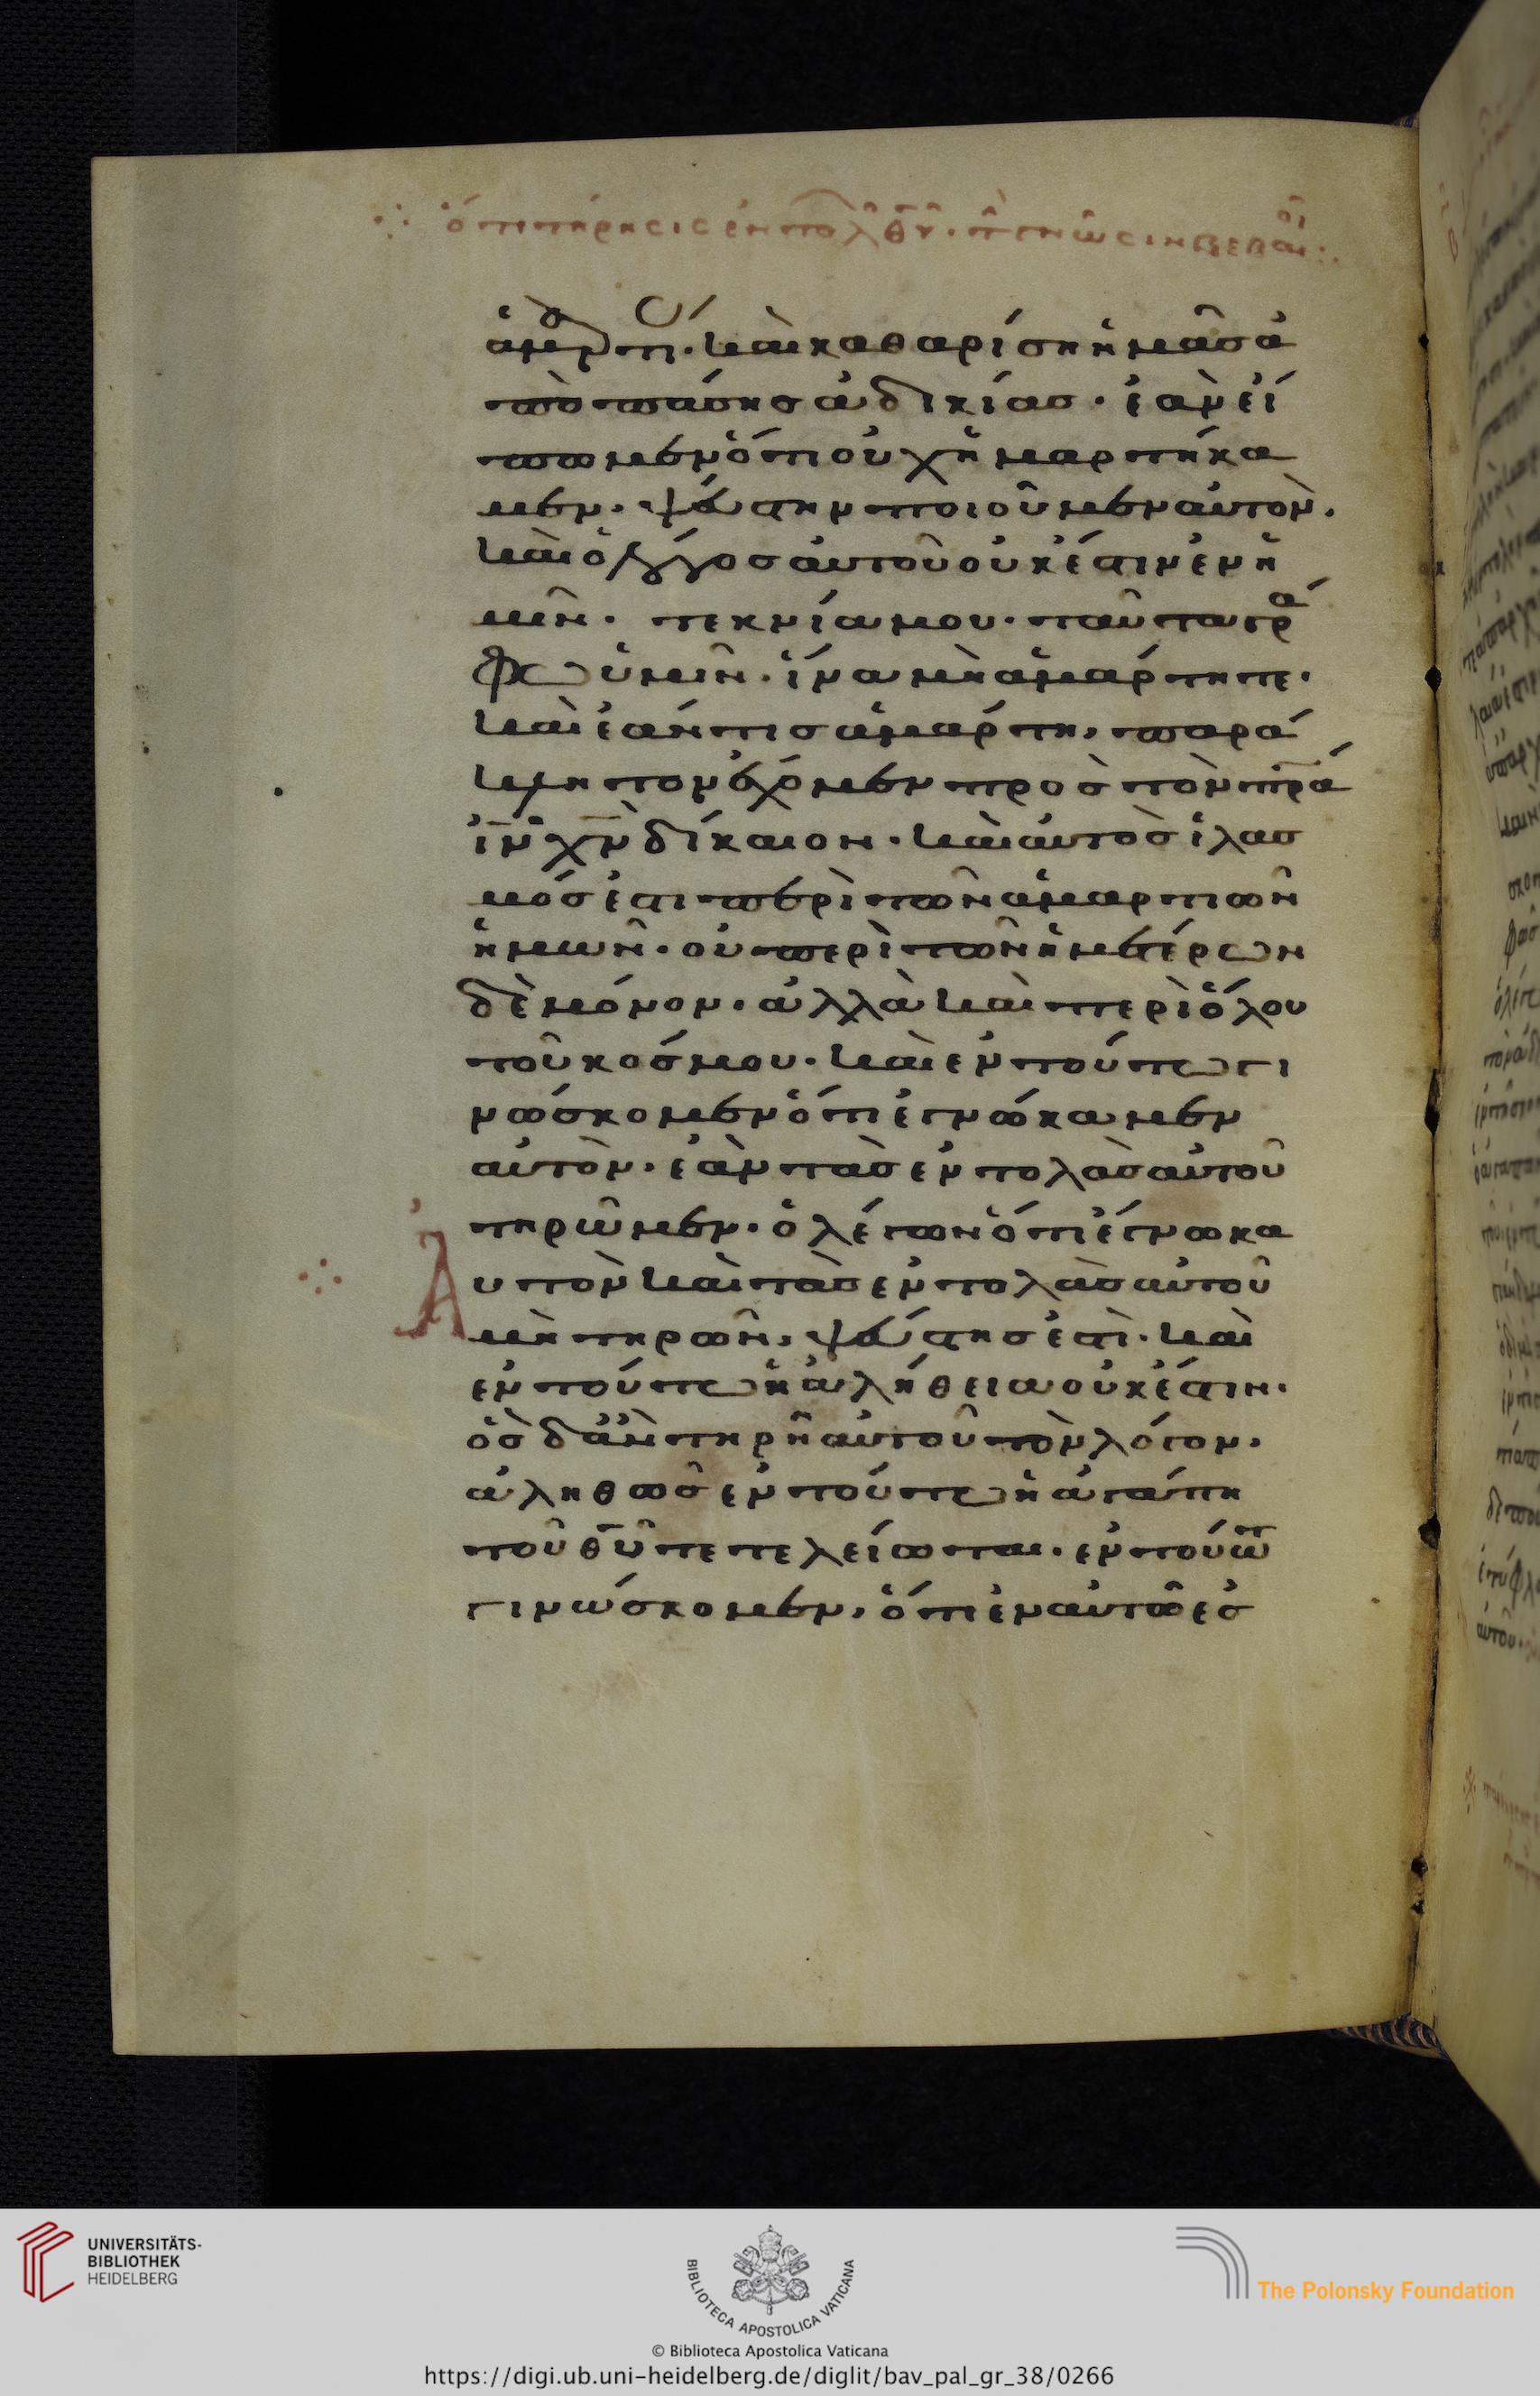 ὅτι τήρησις ἐντολ θυ. τ γνῶσιν βεβαιοῖ:
ἁμαρτ. καὶ καθαρίση ἡμᾶσ ἀ
πὸ πάσησ ἀδικίασ. ἐὰν εἴ
πωμεν ὅτι οὐχ ἡμαρτήκα
μεν. ψεύστην ποιοῦμεν αὐτὸν.
καὶ ὁ λόγοσ αὐτοῦ οὐκ έστιν ἐν ἡ
μῖν. τεκνία μου. ταῦτα γρά
φω ὑμῖν. ἵνα μὴ ἁμάρτητε.
καὶ ἐάν τισ ἁμάρτη, παρά
κλητον ἔχομεν πρὸσ τὸν πρά
ἰν χν δίκαιον. καὶ αὐτὸσ ἱλασ
μόσ ἐστι περὶ τῶν ἁμαρτιῶν
ἡμῶν. οὐ περὶ τῶν ἡμετέρων
δὲ μόνον. ἀλλὰ καὶ περὶ ὅλου
τοῦ κόσμου. καὶ ἐν τούτω γι
νώσκομεν ὅτι ἐγνώκαμεν
αὐτὸν. ἐὰν τὰσ ἐντολὰσ αὐτοῦ
τηρῶμεν. ὁ λέγων ὅτι ἔγνωκα
Αὐτὸν καὶ τὰσ ἐντολὰσ αὐτοῦ
μὴ τηρῶν, ψεύστησ ἐστὶ. καὶ
ἐν τούτω ἡ ἀλήθεια οὐκ έστιν.
ὃσ δ' ἂν τηρῆ αὐτοῦ τὸν λόγον,
ἀληθῶσ ἐν τούτω ἡ ἀγάπη
τοῦ θυ τετελείωται. ἐν τούτω
γινώσκομεν, ὅτι ἐν αὐτῶ ἐσ
UNIVERSITÄTS-
BIBLIOTHEK
HEIDELBERG
BIBLIOTECA APOSTOLICA VATICANA
The Polonsky Foundation
© Biblioteca Apostolica Vaticana
https://digi.ub.uni-heidelberg.de/diglit/bav_pal_gr_38/0266